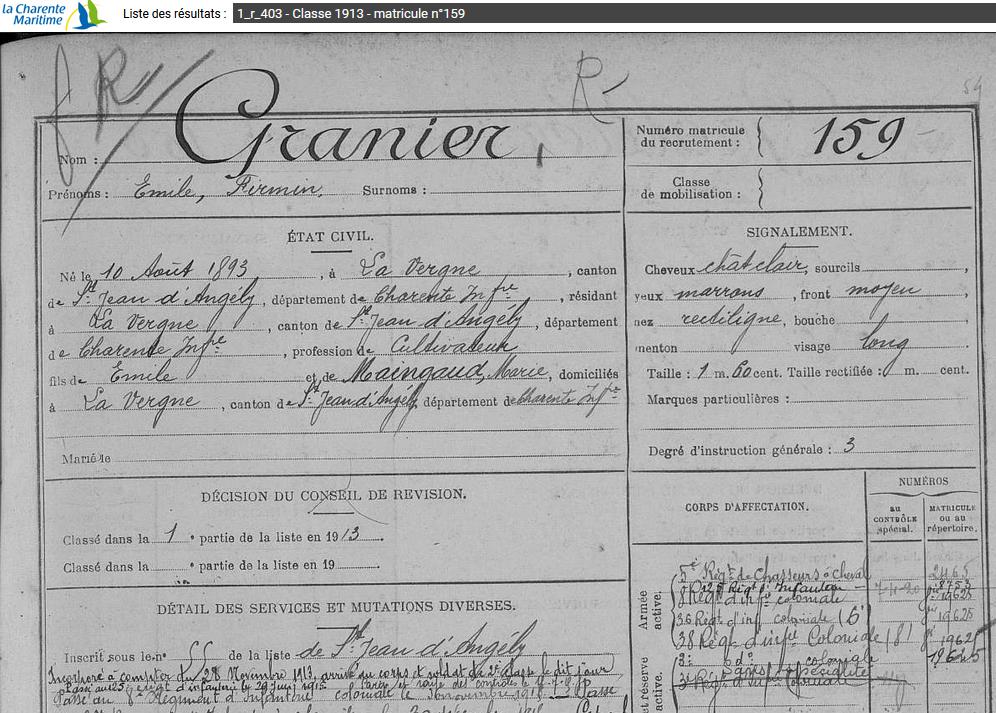 la Charente
Maritime
Liste des résultats : 1_r_403 - Classe 1913 - matricule n°159
R
R
54
Granier,
Nom :
Prénoms : Emile, Firmin, Surnoms :
Numéro matricule
du recrutement :
159
Classe
de mobilisation :
ÉTAT CIVIL.
Né le 10 Août 1893, à La Vergne, canton
de St Jean d'Angély, département de Charente Infre, résidant
à La Vergne, canton de St Jean d'Angély, département
de Charente Infre, profession de Cultivateur
fils de Emile et de Maingaud, Marie, domiciliés
à La Vergne, canton de St Jean d'Angély, département de Charente Infre
Marié le
SIGNALEMENT.
Cheveux chât clair, sourcils
yeux marrons, front moyen,
nez rectiligne, bouche
menton visage long
Taille : 1 m. 60 cent. Taille rectifiée : m. cent.
Marques particulières :
Degré d'instruction générale : 3
DÉCISION DU CONSEIL DE REVISION.
Classé dans la 1e partie de la liste en 1913.
Classé dans la e partie de la liste en 19
DÉTAIL DES SERVICES ET MUTATIONS DIVERSES.
Inscrit sous le n° 55 de la liste de St Jean d'Angély
Incorporé à compter du 28 Novembre 1913, arrivé au corps et soldat de 2e classe le dit jour
Passé au d'infanterie le 29 juin 1915
Passé du 8e Régiment d'Infanterie coloniale le novembre 1918 Passé
CORPS D'AFFECTATION.
NUMÉROS
au
CONTRÔLE
spécial.
MATRICULE
ou au
répertoire.
Armée
active.
et réserve
active.
5e Régt de Chasseurs à Cheval 2465
Régt Infanterie 8753
8 Régt d'infie coloniale 19625
36 Régt d'inf coloniale 19625
38 Régt d'infie Coloniale 19625
3e do coloniale 19625